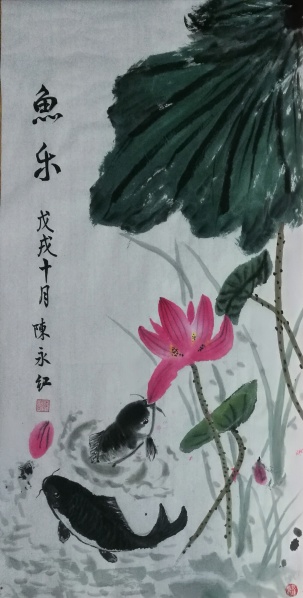 魚乐
戊戌十月
陳永红